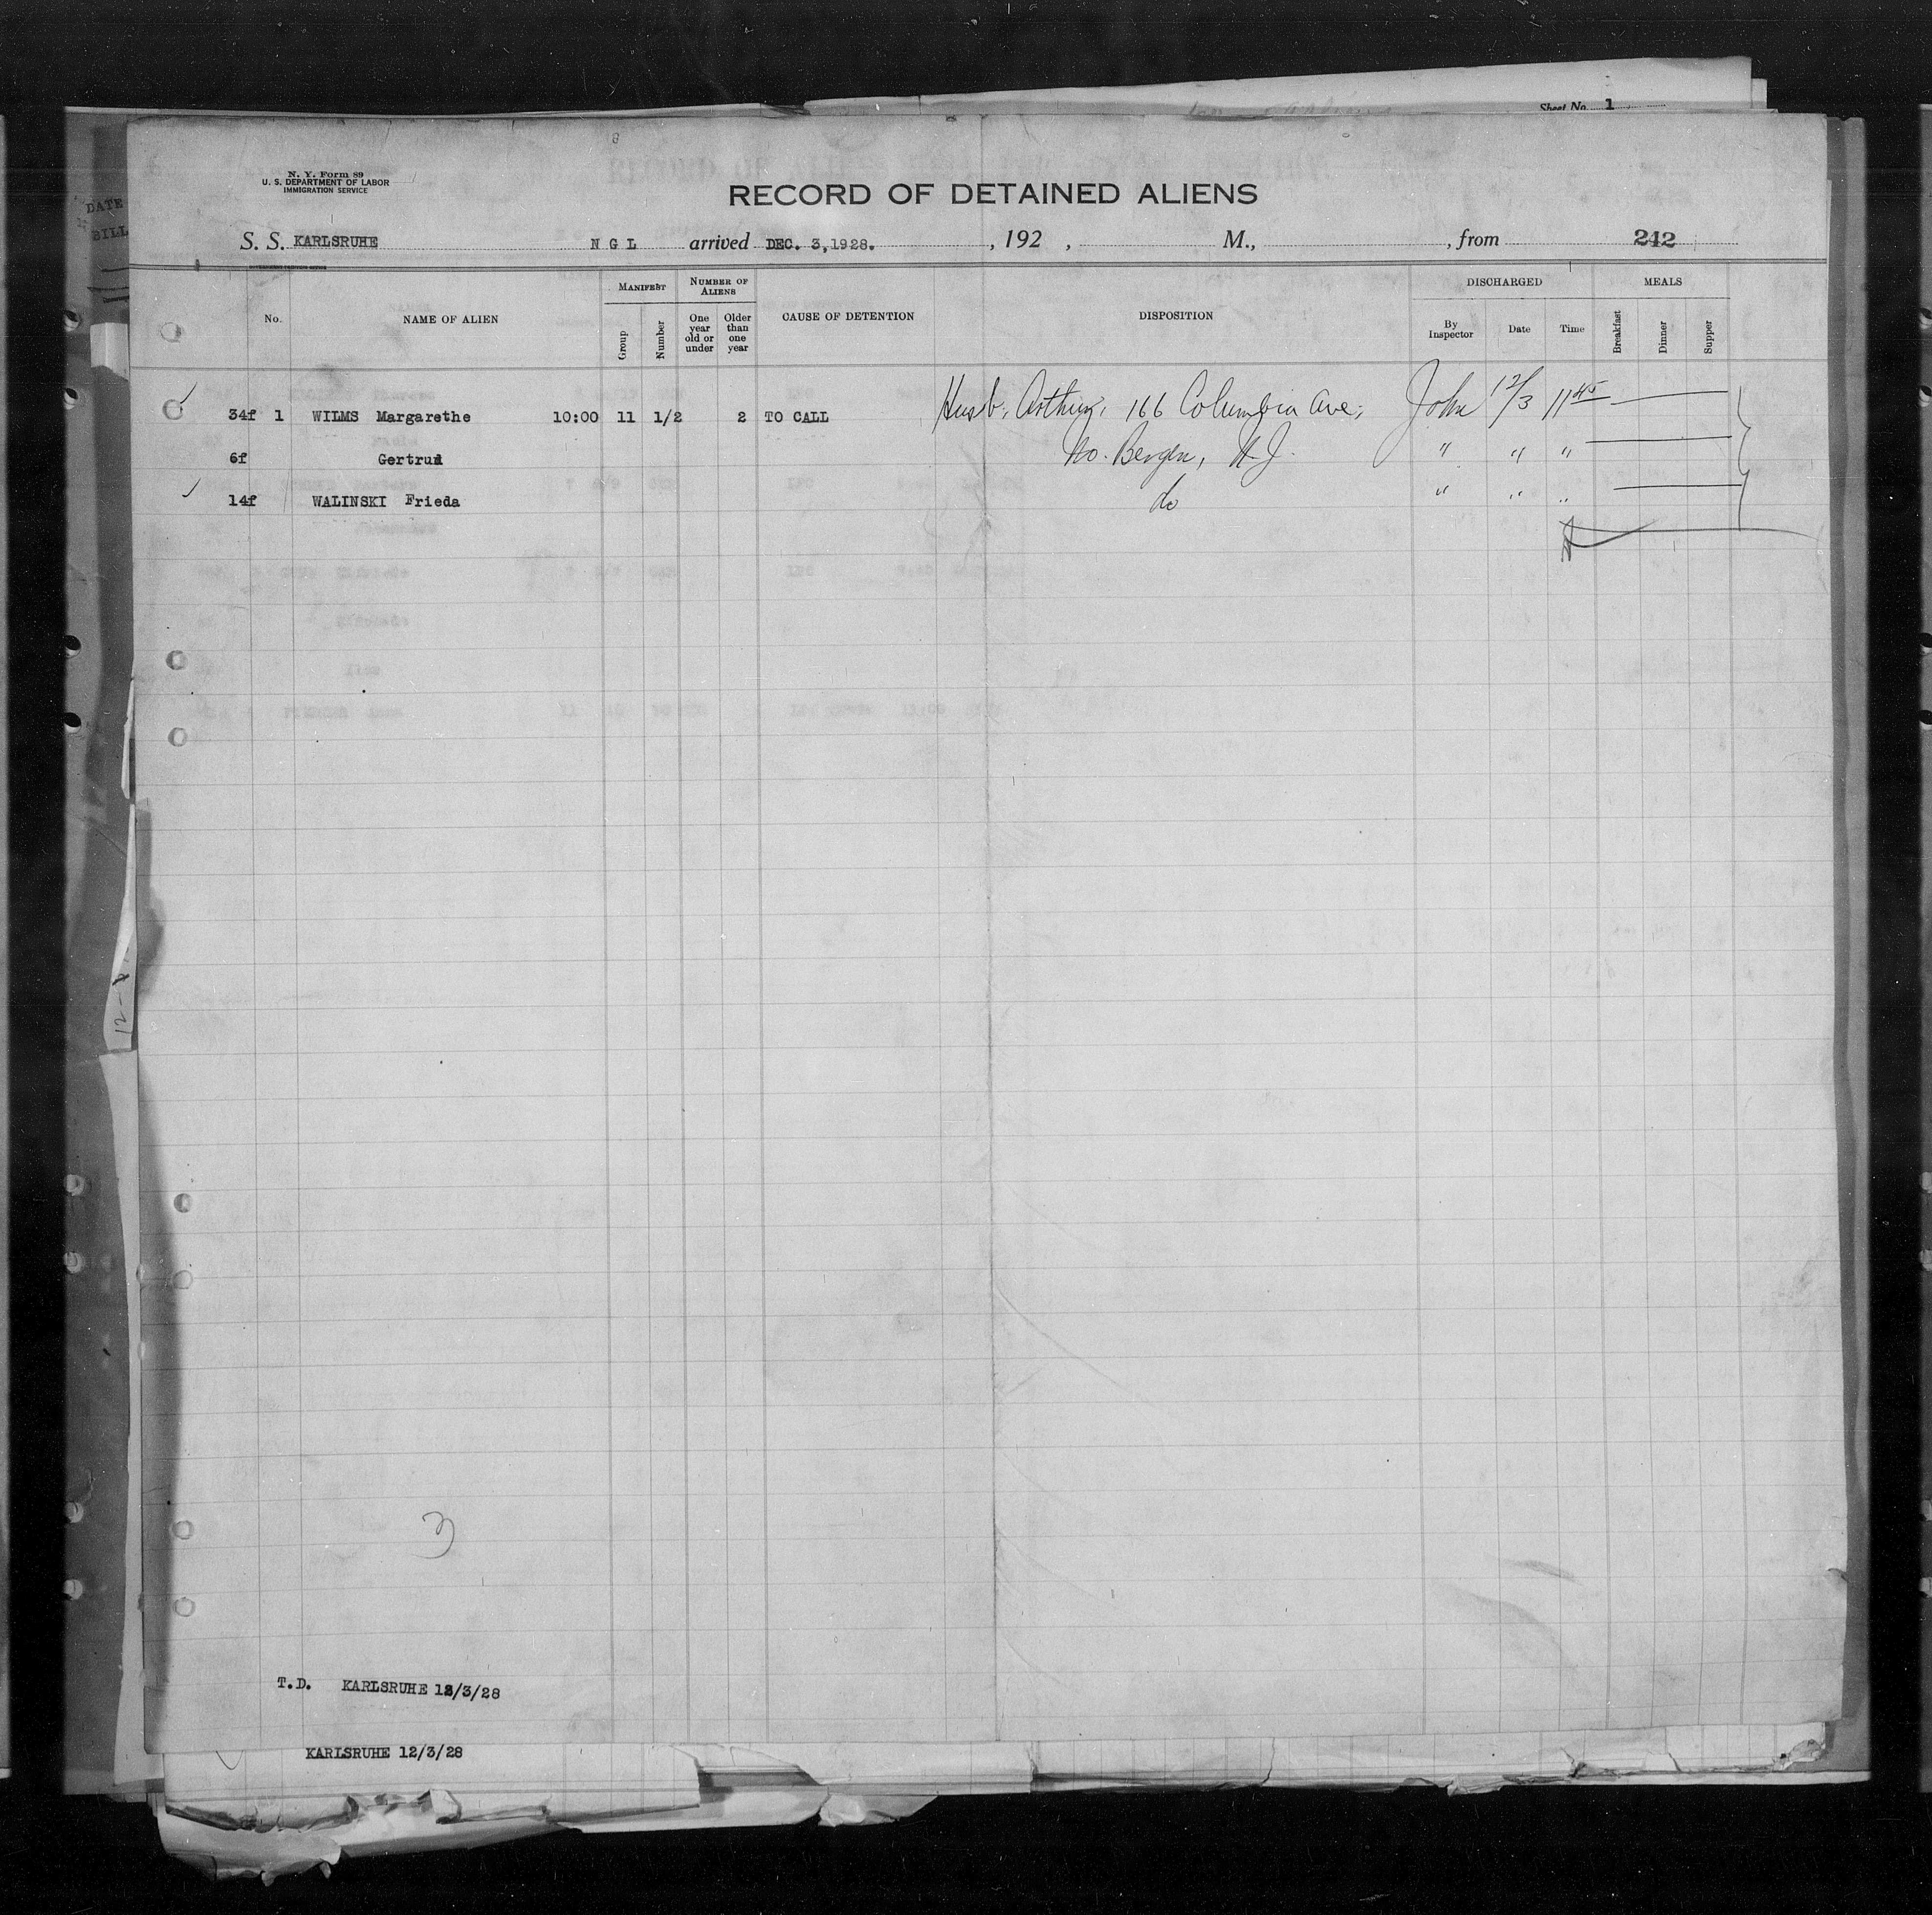 Sheet No. 1
DATE
BILL
N. Y. Form 89
U. S. DEPARTMENT OF LABOR
IMMIGRATION SERVICE
RECORD OF DETAINED ALIENS
S. S. KARLSRUHE N G L arrived DEC. 3, 1928. , 192 , M., , from 242
No. NAME OF ALIEN MANIFEST Group Number NUMBER OF ALIENS One year old or under Older than one year CAUSE OF DETENTION DISPOSITION DISCHARGED By Inspector Date Time MEALS Breakfast Dinner Supper
34f 1 WILMS Margarethe 10:00 11 1/2 2 TO CALL Husb, Arthur, 166 Columbia Ave, John 12/3 11 45
6f Gertrud No. Bergen, N.J. " " "
14f WALINSKI Frieda do " " "
3
12-
T.D. KARLSRUHE 12/3/28
KARLSRUHE 12/3/28